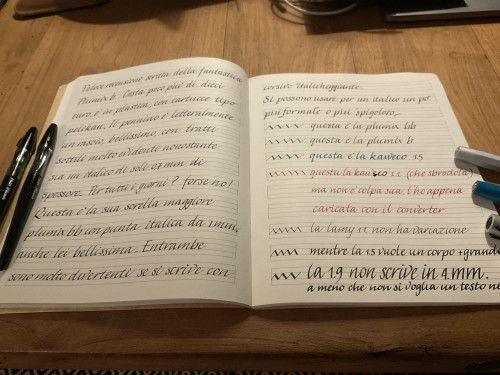 Breve recensione scritta della fantastica
Plumix b. Costa poco più di dieci
euro, è in plastica, con cartucce tipo
pelikan. Il pennino è letteralmente
un rasoio, bellissime con tratti
sottili molto evidenti nonostante
sia un italico di soli 0.7 mm di
spessore. Per tutti i giorni? forse no!
Questa è la sua sorella maggiore
plumix bb con punta italica da 1 mm,
anche lei bellissima. Entrambe
sono molto divertenti se si scrive con
corsivo italicheggiante.
Si possono usare per un italico un po'
più formale o più spigoloso,
questa è la plumix bb
questa è la plumix b
questa è la kaweco 1.5
questa la kaweco 1.1 (che sbrodola)
ma non è colpa sua: l'ho appena
caricata con il converter
la lamy 1.1 non ha variazione
mentre la 1.5 vuole un corpo +grande
la 1.9 non scrive in 4 mm.
a meno che non si voglia un testo ne